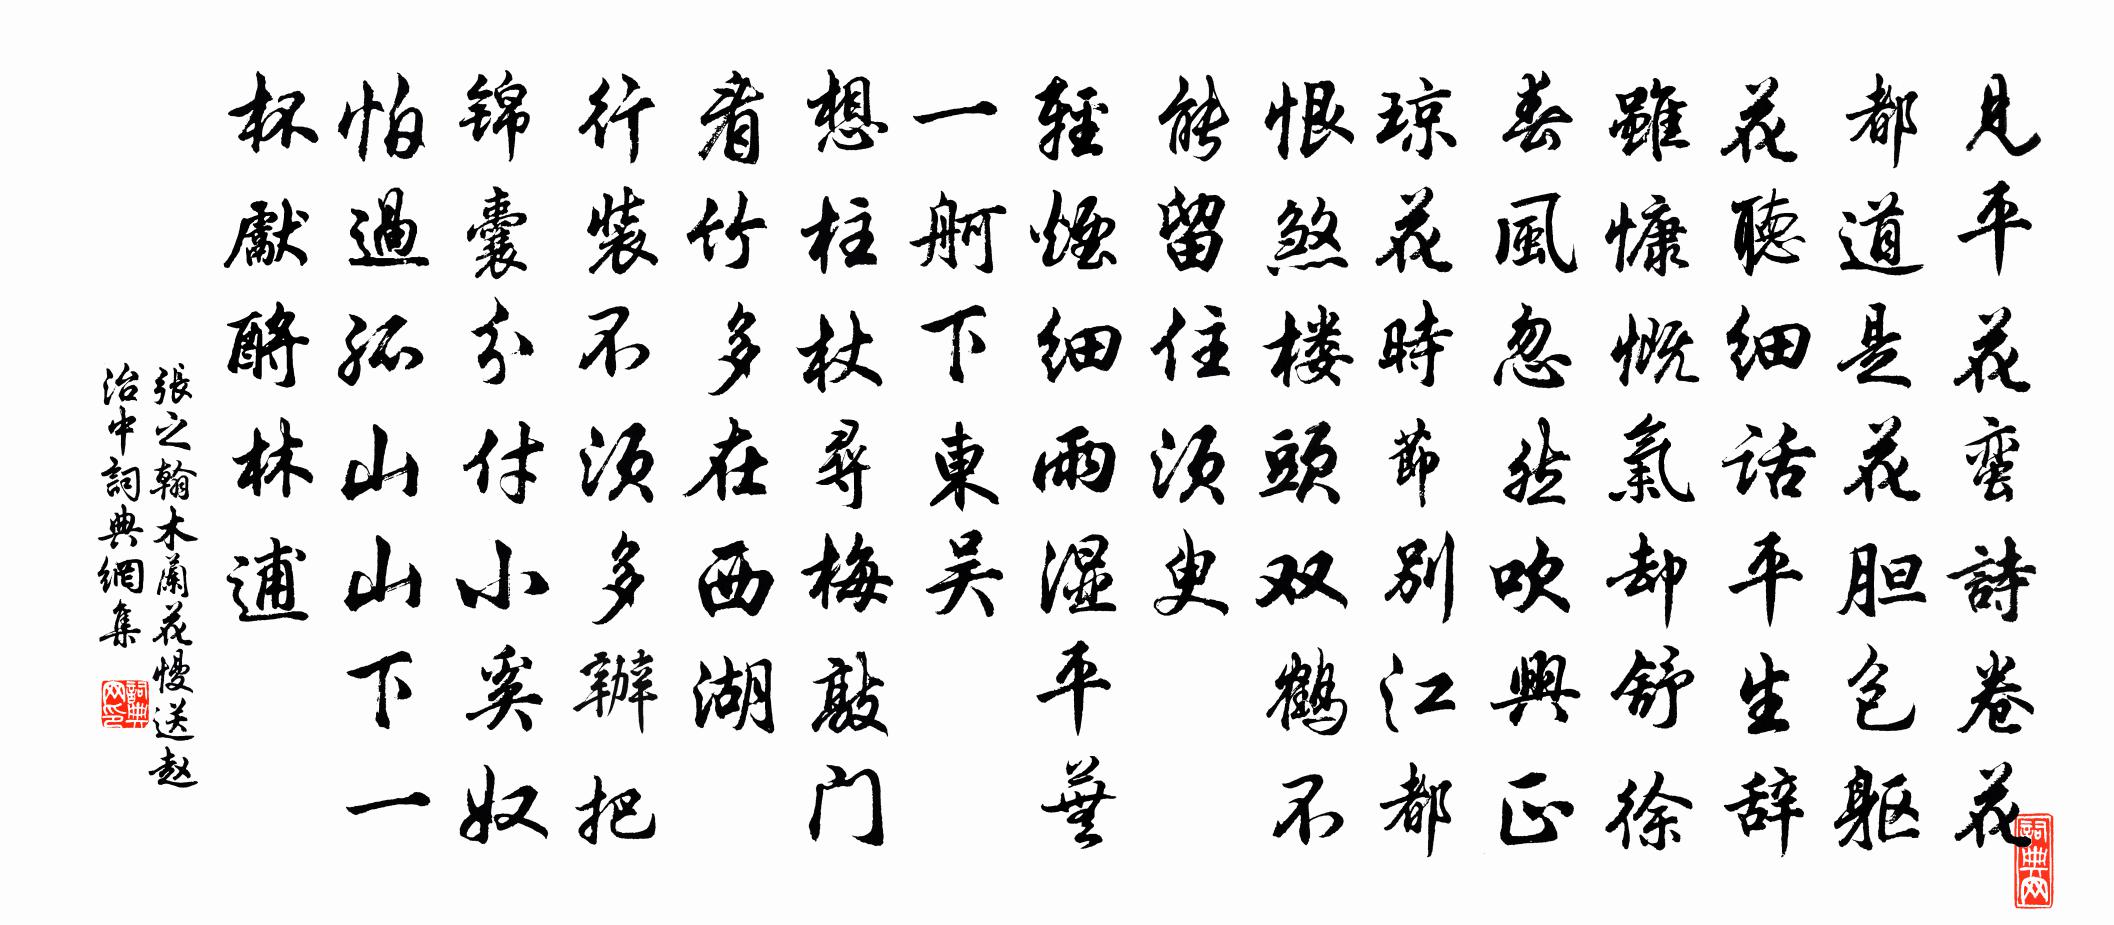 見平花蛮詩卷花
都道是花胆包躯
花聽細話平生辞
雖慷慨氣却舒徐
春風忽然吹興正
琼花時節别江都
恨煞楼頭双鶴不
能留住须臾
輕煙細雨湿平蕪
一舸下東吴
想柱杖尋梅敲门
看竹多在西湖
行装不须多辦把
锦囊分付小奚奴
怕過孤山山下一
杯獻酹林逋
張之翰木蘭花慢送赵
治中詞典網集
詞典网
詞典网印